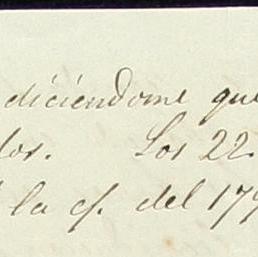 diciéndome que
dor. Los 22.
la cf. del 179